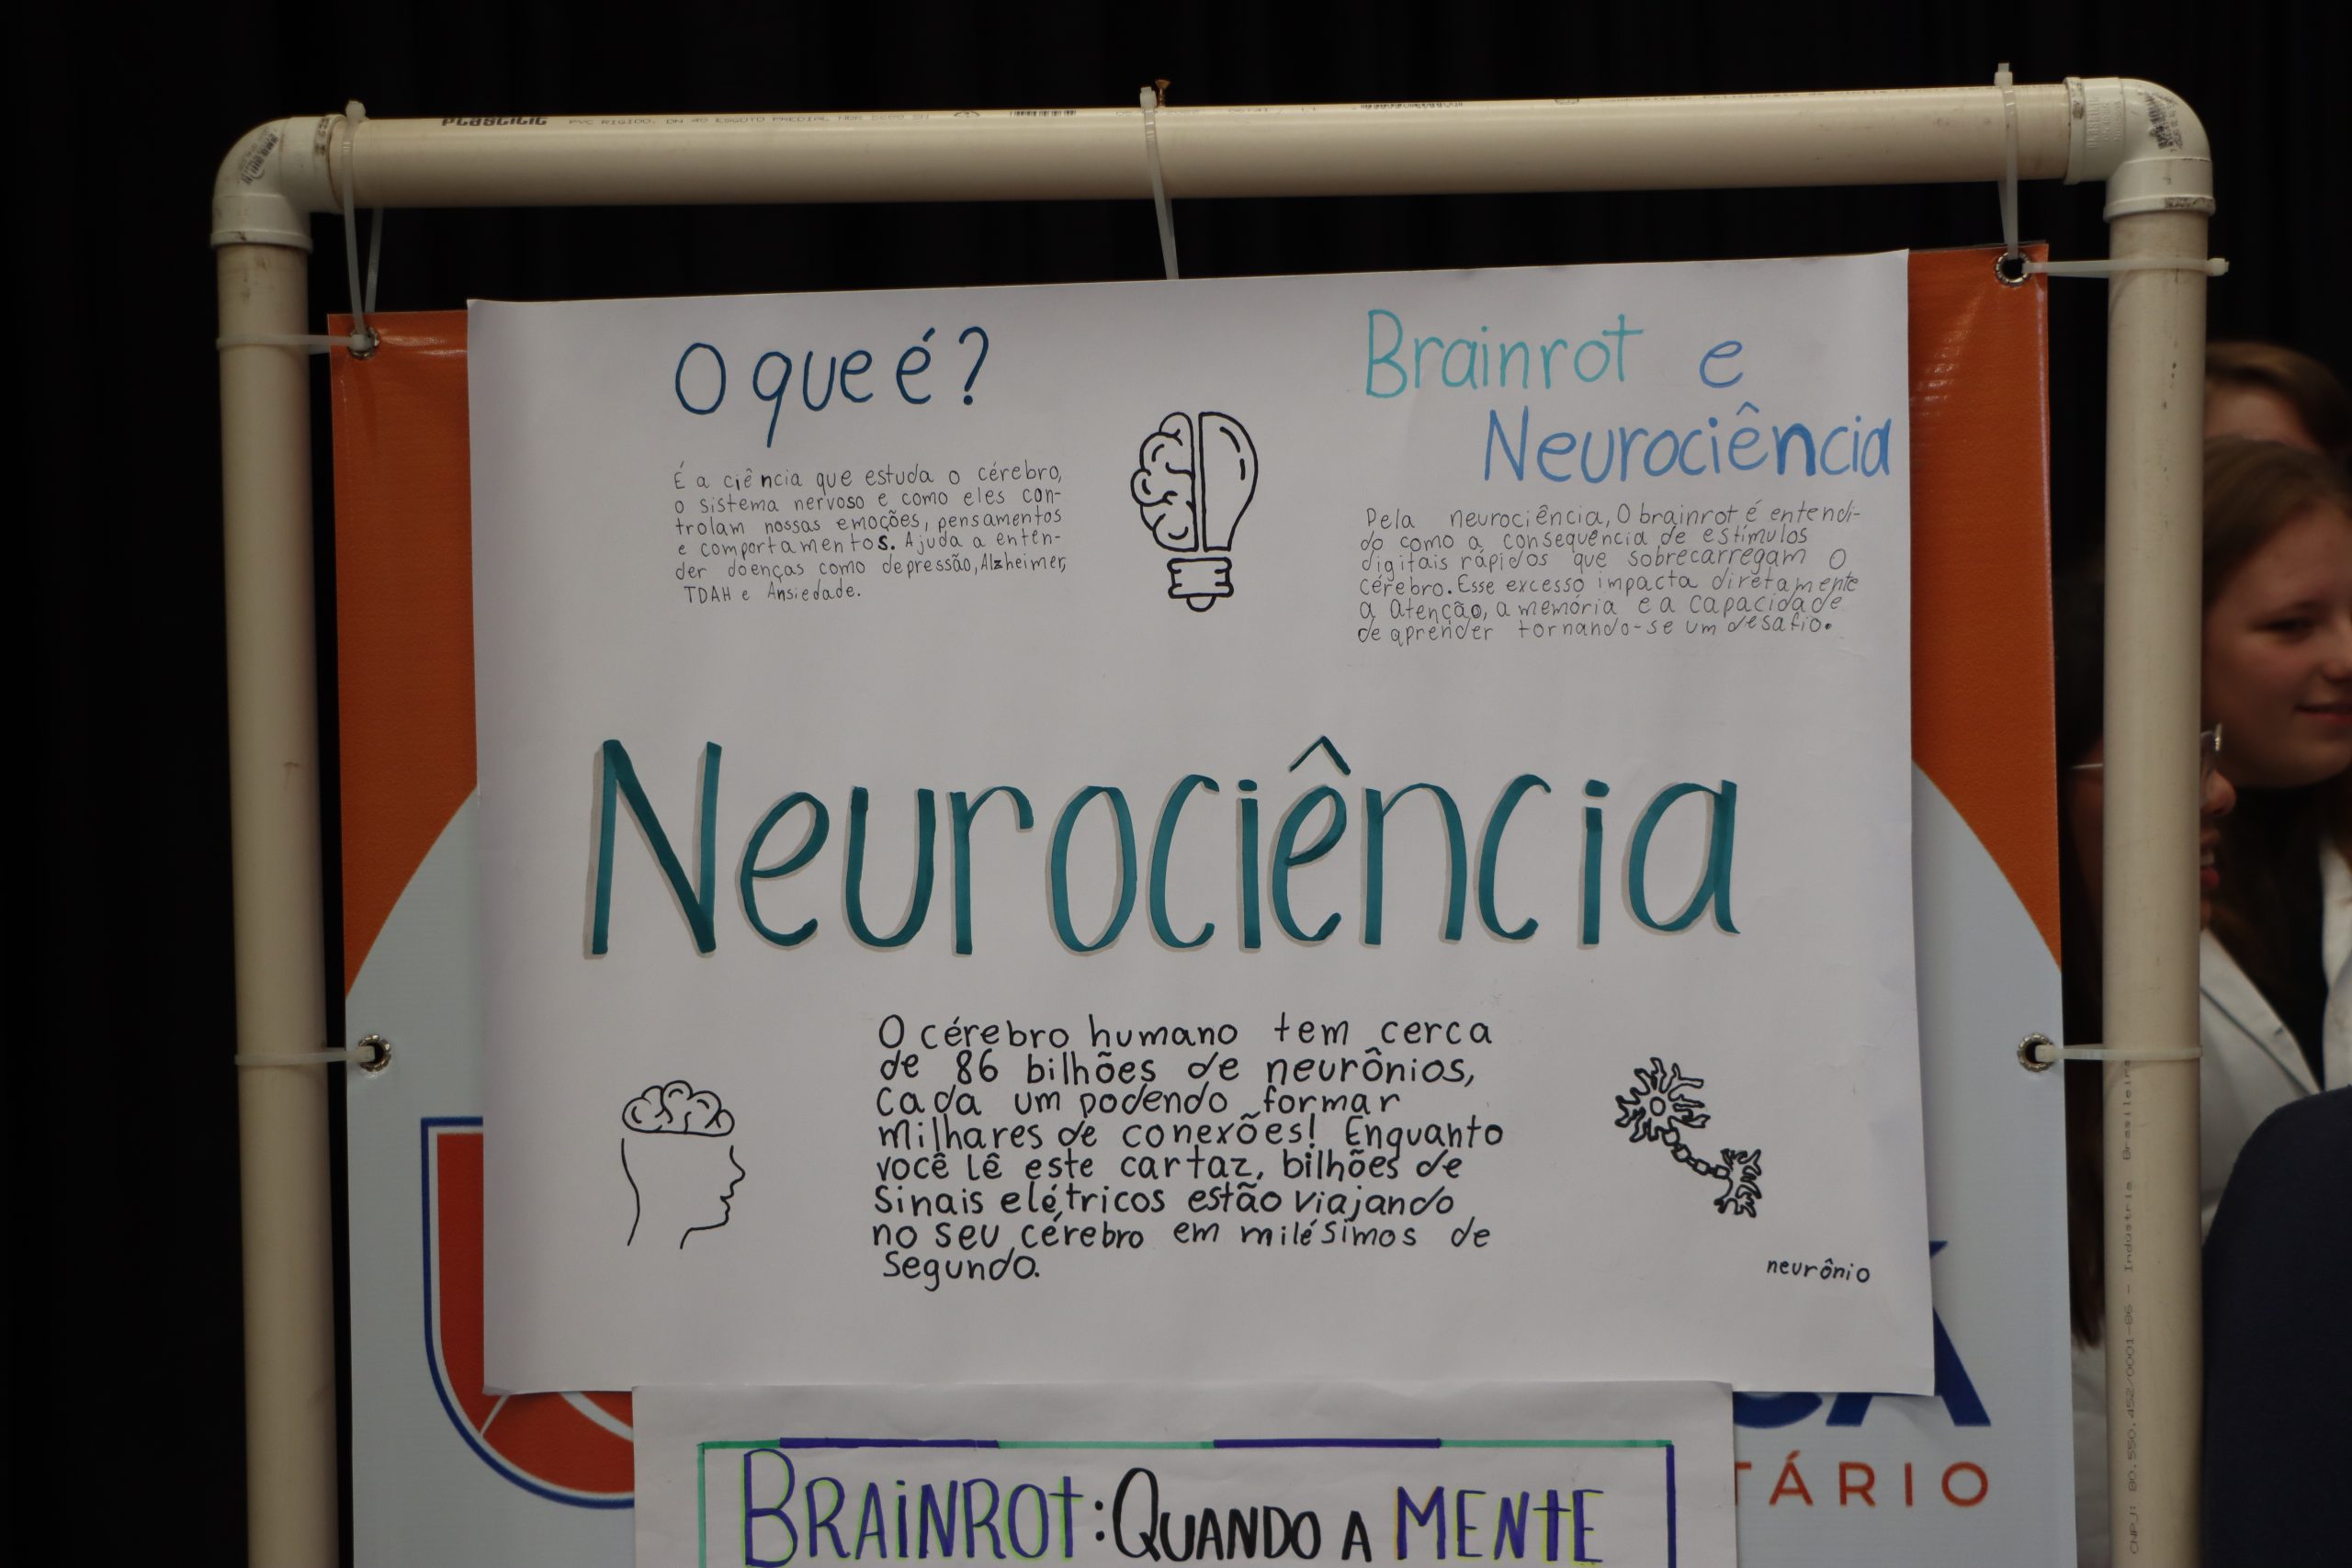 PVC RIGIDO, DN 40 ESGOTO PREDIAL NBR
O que é?
É a ciência que estuda o cérebro,
o sistema nervoso e como eles con-
trolam nossas emoções, pensamentos
e comportamentos. Ajuda a enten-
der doenças como depressão, Alzheimer,
TDAH e Ansiedade.
Brainrot e
Neurociência
Pela neurociência, O brainrot é entendi-
do como a consequência de estímulos
digitais rápidos que sobrecarregam O
cérebro. Esse excesso impacta diretamente
a Atenção, a memória e a capacidade
de aprender tornando-se um desafio.
Neurociência
O cérebro humano tem cerca
de 86 bilhões de neurônios,
cada um podendo formar
milhares de conexões! Enquanto
você lê este cartaz, bilhões de
Sinais elétricos estão viajando
no seu cérebro em milésimos de
Segundo.
neurônio
BRAINROT: QUANDO A MENTE
CA
TÁRIO
CNPJ: 80.550.452/0001-86 - Industria Brasileira